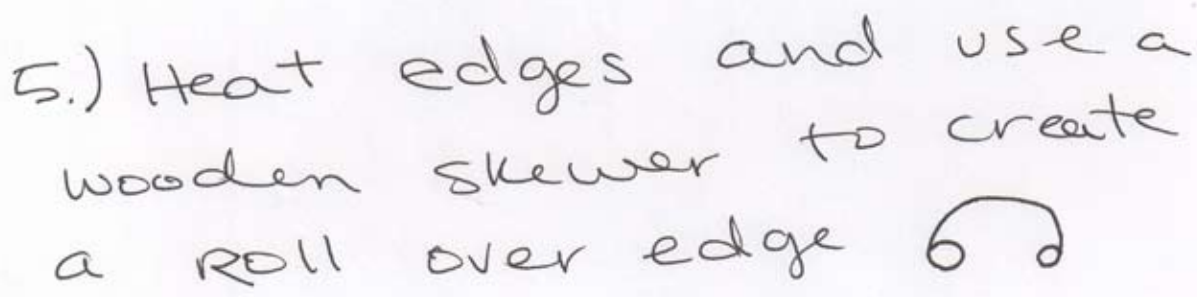 5.) Heat edges and use a
wooden skewer to create
a Roll over edge